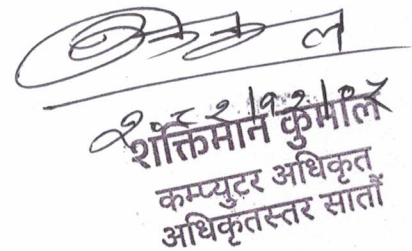 शक्तिमान कुमाल
कम्प्युटर अधिकृत
अधिकृतस्तर सातौं